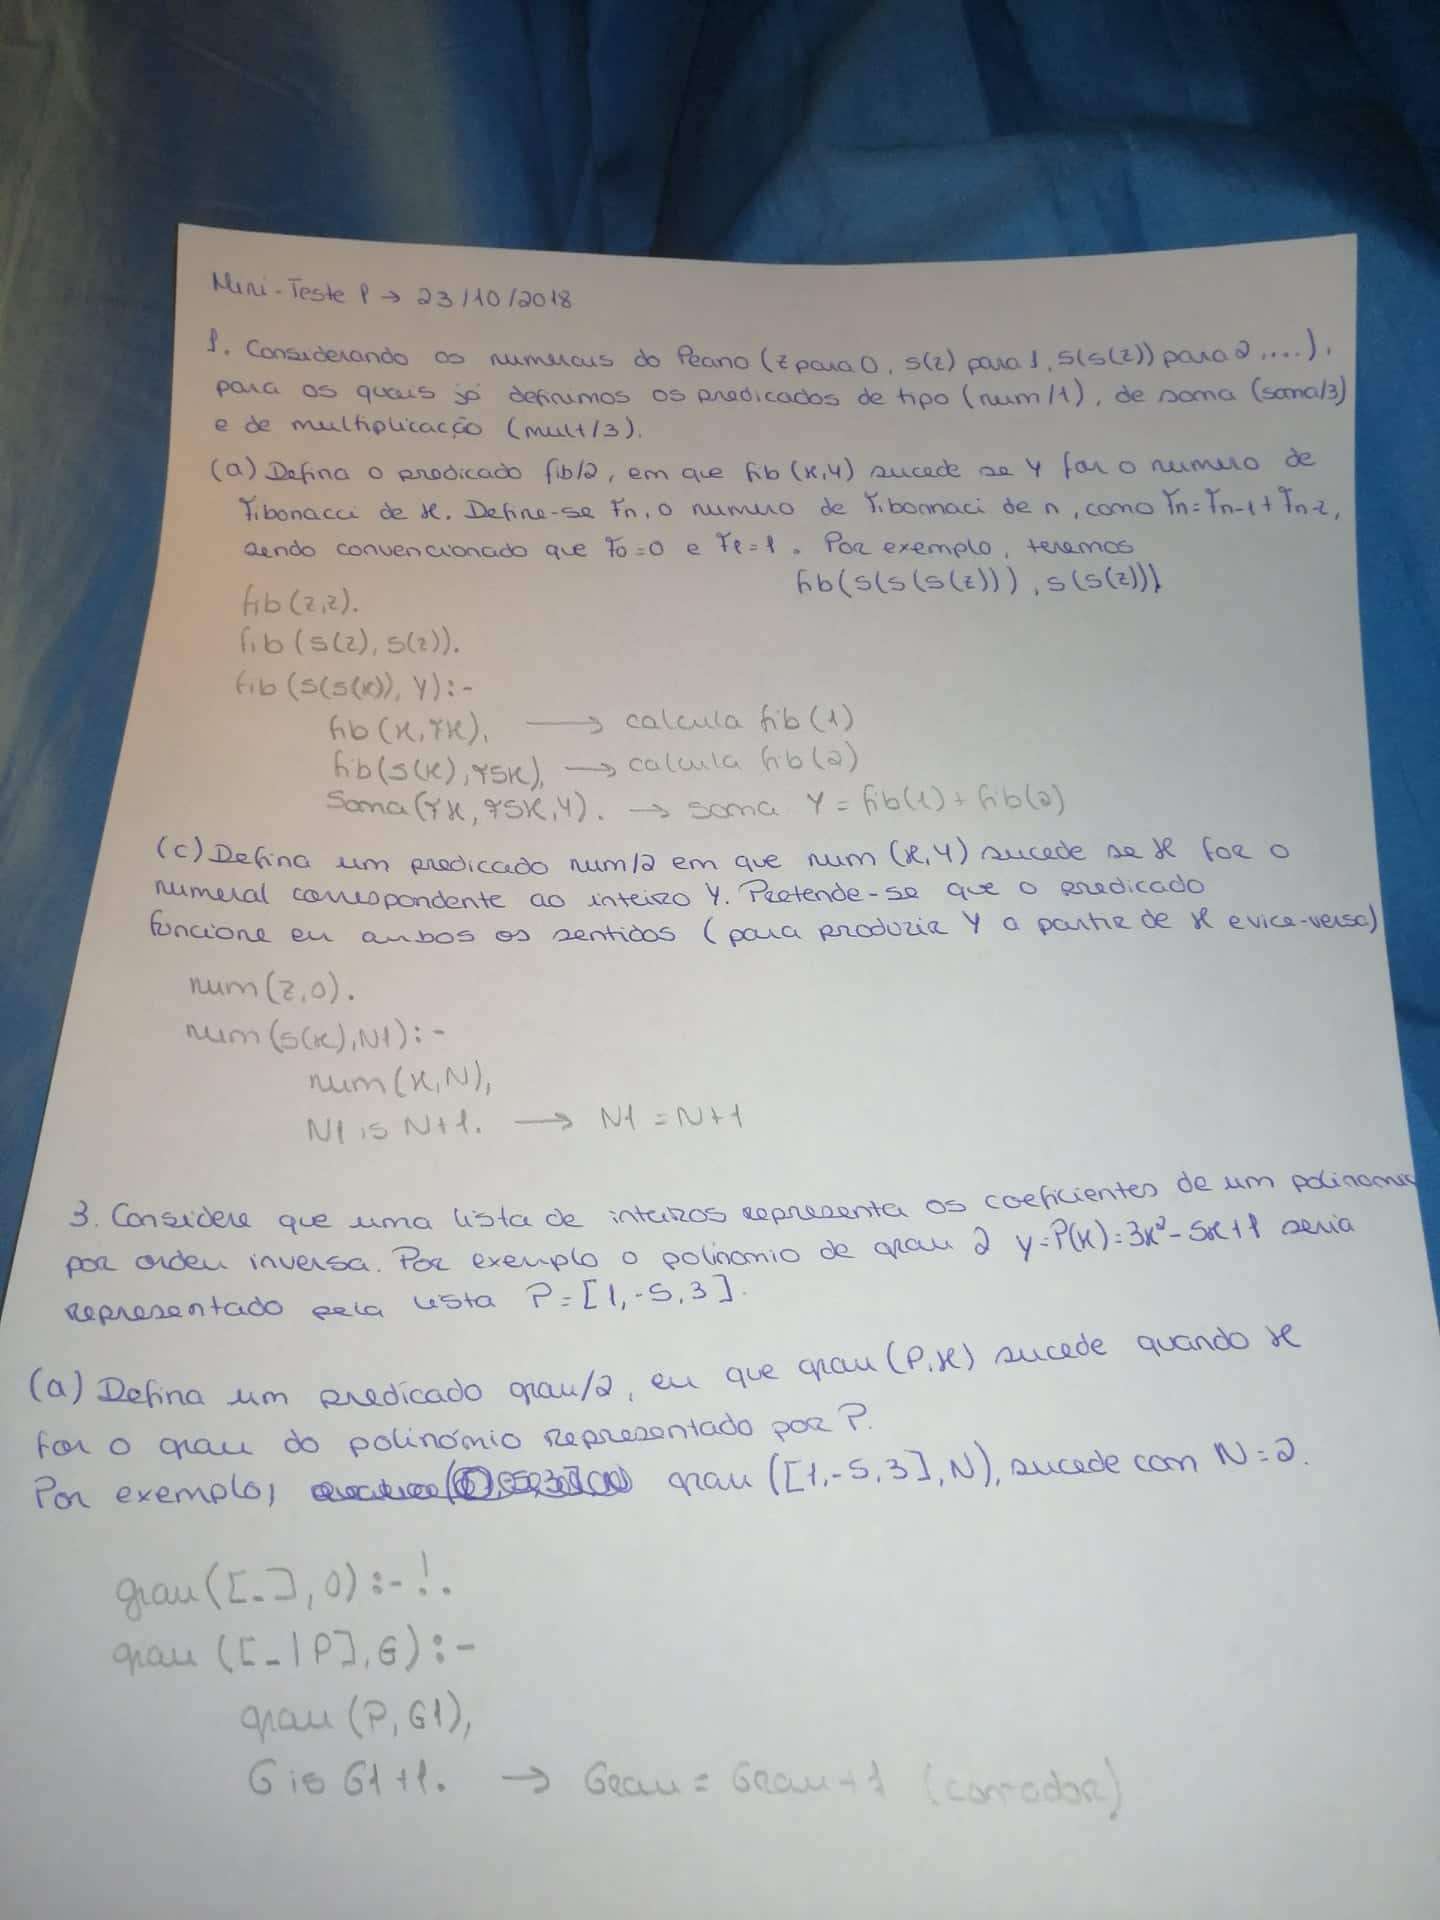 Mini-Teste 1 → 23/10/2018
1. Considerando os numerais do Peano (z para 0, s(z) para 1, s(s(z)) para 2, ....),
para os quais já definimos os predicados de tipo (num/1), de soma (soma/3)
e de multiplicação (mult/3).
(a) Defina o predicado fib/2, em que fib(x,y) sucede se y for o numero de
Fibonacci de x. Define-se Fn, o numero de Fibonnaci de n, como Fn=Fn-1+Fn-2,
sendo convencionado que F0=0 e F1=1. Por exemplo, teremos
fib(s(s(s(z))),s(s(z)))
fib(z,z).
fib(s(z),s(z)).
fib(s(s(x)),Y):-
fib(x,FX), → calcula fib(1)
fib(s(x),FSX), → calcula fib(2)
Soma(FX,FSX,Y). → soma Y = fib(1)+fib(2)
(c) Defina um predicado num/2 em que num(x,y) sucede se x for o
numeral correspondente ao inteiro Y. Pretende-se que o predicado
funcione em ambos os sentidos (para produzir Y a partir de x e vice-versa)
num(z,0).
num(s(x),N1):-
num(x,N),
N1 is N+1. → N1 = N+1
3. Considere que uma lista de inteiros representa os coeficientes de um polinomio
por ordem inversa. Por exemplo o polinomio de grau 2 y=P(x)=3x²-5x+1 seria
representado pela lista P=[1,-5,3].
(a) Defina um predicado grau/2, em que grau(P,x) sucede quando x
for o grau do polinómio representado por P.
Por exemplo, grau([1,-5,3],N), sucede com N=2.
grau([_],0):-!.
grau([_|P],G):-
grau(P,G1),
G is G1+1. → Grau = Grau+1 (contador)